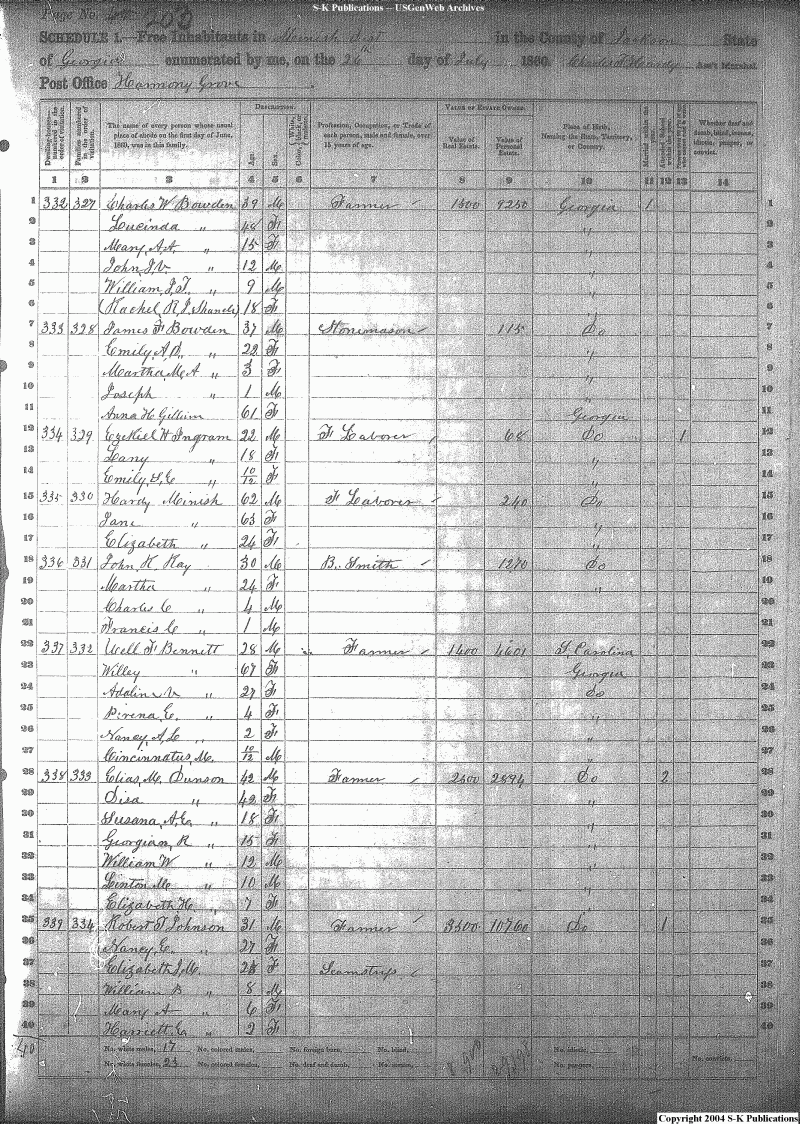 S-K Publications -- USGenWeb Archives
Page No. 203
SCHEDULE 1.—Free Inhabitants in Minish Dist in the County of Jackson State
of Georgia enumerated by me, on the 26th day of July 1860. Charles Hardy Ass't Marshal.
Post Office Harmony Grove.
DESCRIPTION. VALUE OF ESTATE OWNED.
Dwelling-houses numbered in the order of visitation. Families numbered in the order of visitation. The name of every person whose usual place of abode on the first day of June, 1860, was in this family. Age. Sex. Color, White, black, or mulatto. Profession, Occupation, or Trade of each person, male and female, over 15 years of age. Value of Real Estate. Value of Personal Estate. Place of Birth, Naming the State, Territory, or Country. Married within the year. Attended School within the year. Whether deaf and dumb, blind, insane, idiotic, pauper, or convict.
1 2 3 4 5 6 7 8 9 10 11 12 13 14
1 332 327 Charles W Bowden 39 M Farmer 1500 9250 Georgia 1 1
2 Lucinda " 48 F " 2
3 Mary A " 15 F " 3
4 John J V " 12 M " 4
5 William J T. " 9 M " 5
6 (Rachel R J 18 F " 6
7 333 328 James F Bowden 37 M Stonemason 115 Do 7
8 Emily A " 22 F " 8
9 Martha M A " 3 F " 9
10 Joseph " 1 M " 10
11 Anna H Gillium 61 F Georgia 11
12 334 329 Ezekiel H Ingram 22 M F Laborer 68 Do 1 12
13 Lany " 18 F " 13
14 Emily S. E " 10/12 F " 14
15 335 330 Hardy Minish 62 M F Laborer 240 Do 15
16 Jane " 63 F " 16
17 Elizabeth " 24 F " 17
18 336 331 John K Kay 30 M B. Smith 1270 Do 18
19 Martha " 24 F " 19
20 Charles C " 4 M 20
21 Francis C " 1 M 21
22 337 332 Well F Bennett 28 M Farmer 1400 4601 S. Carolina 22
23 Willey " 67 F Georgia 23
24 Adaline V " 27 F Do 24
25 Pirena E. " 4 F " 25
26 Nancy A L " 2 F " 26
27 Cincinnatus M. 10/12 M " 27
28 338 333 Elias M. Dunson 42 M Farmer 2500 2894 Do 2 28
29 Sisa " 42 F " 29
30 Susana A E " 18 F " 30
31 Georgian R " 15 F " 31
32 William W " 12 M " 32
33 Linton M " 10 M " 33
34 Elizabeth H " 7 F " 34
35 339 334 Robert T Johnson 31 M Farmer 3500 10760 Do 1 35
36 Nancy E. " 27 F 36
37 Elizabeth J M. 28 F Seamstress 37
38 William B " 8 M 38
39 Mary A " 6 F 39
40 Harriett E " 2 F 40
40 No. white males, 17 No. colored males, No. foreign born, No. blind, No. idiotic,
No. white females, 23 No. colored females, No. deaf and dumb, No. insane, No. paupers, No. convicts,
Copyright 2004 S-K Publications